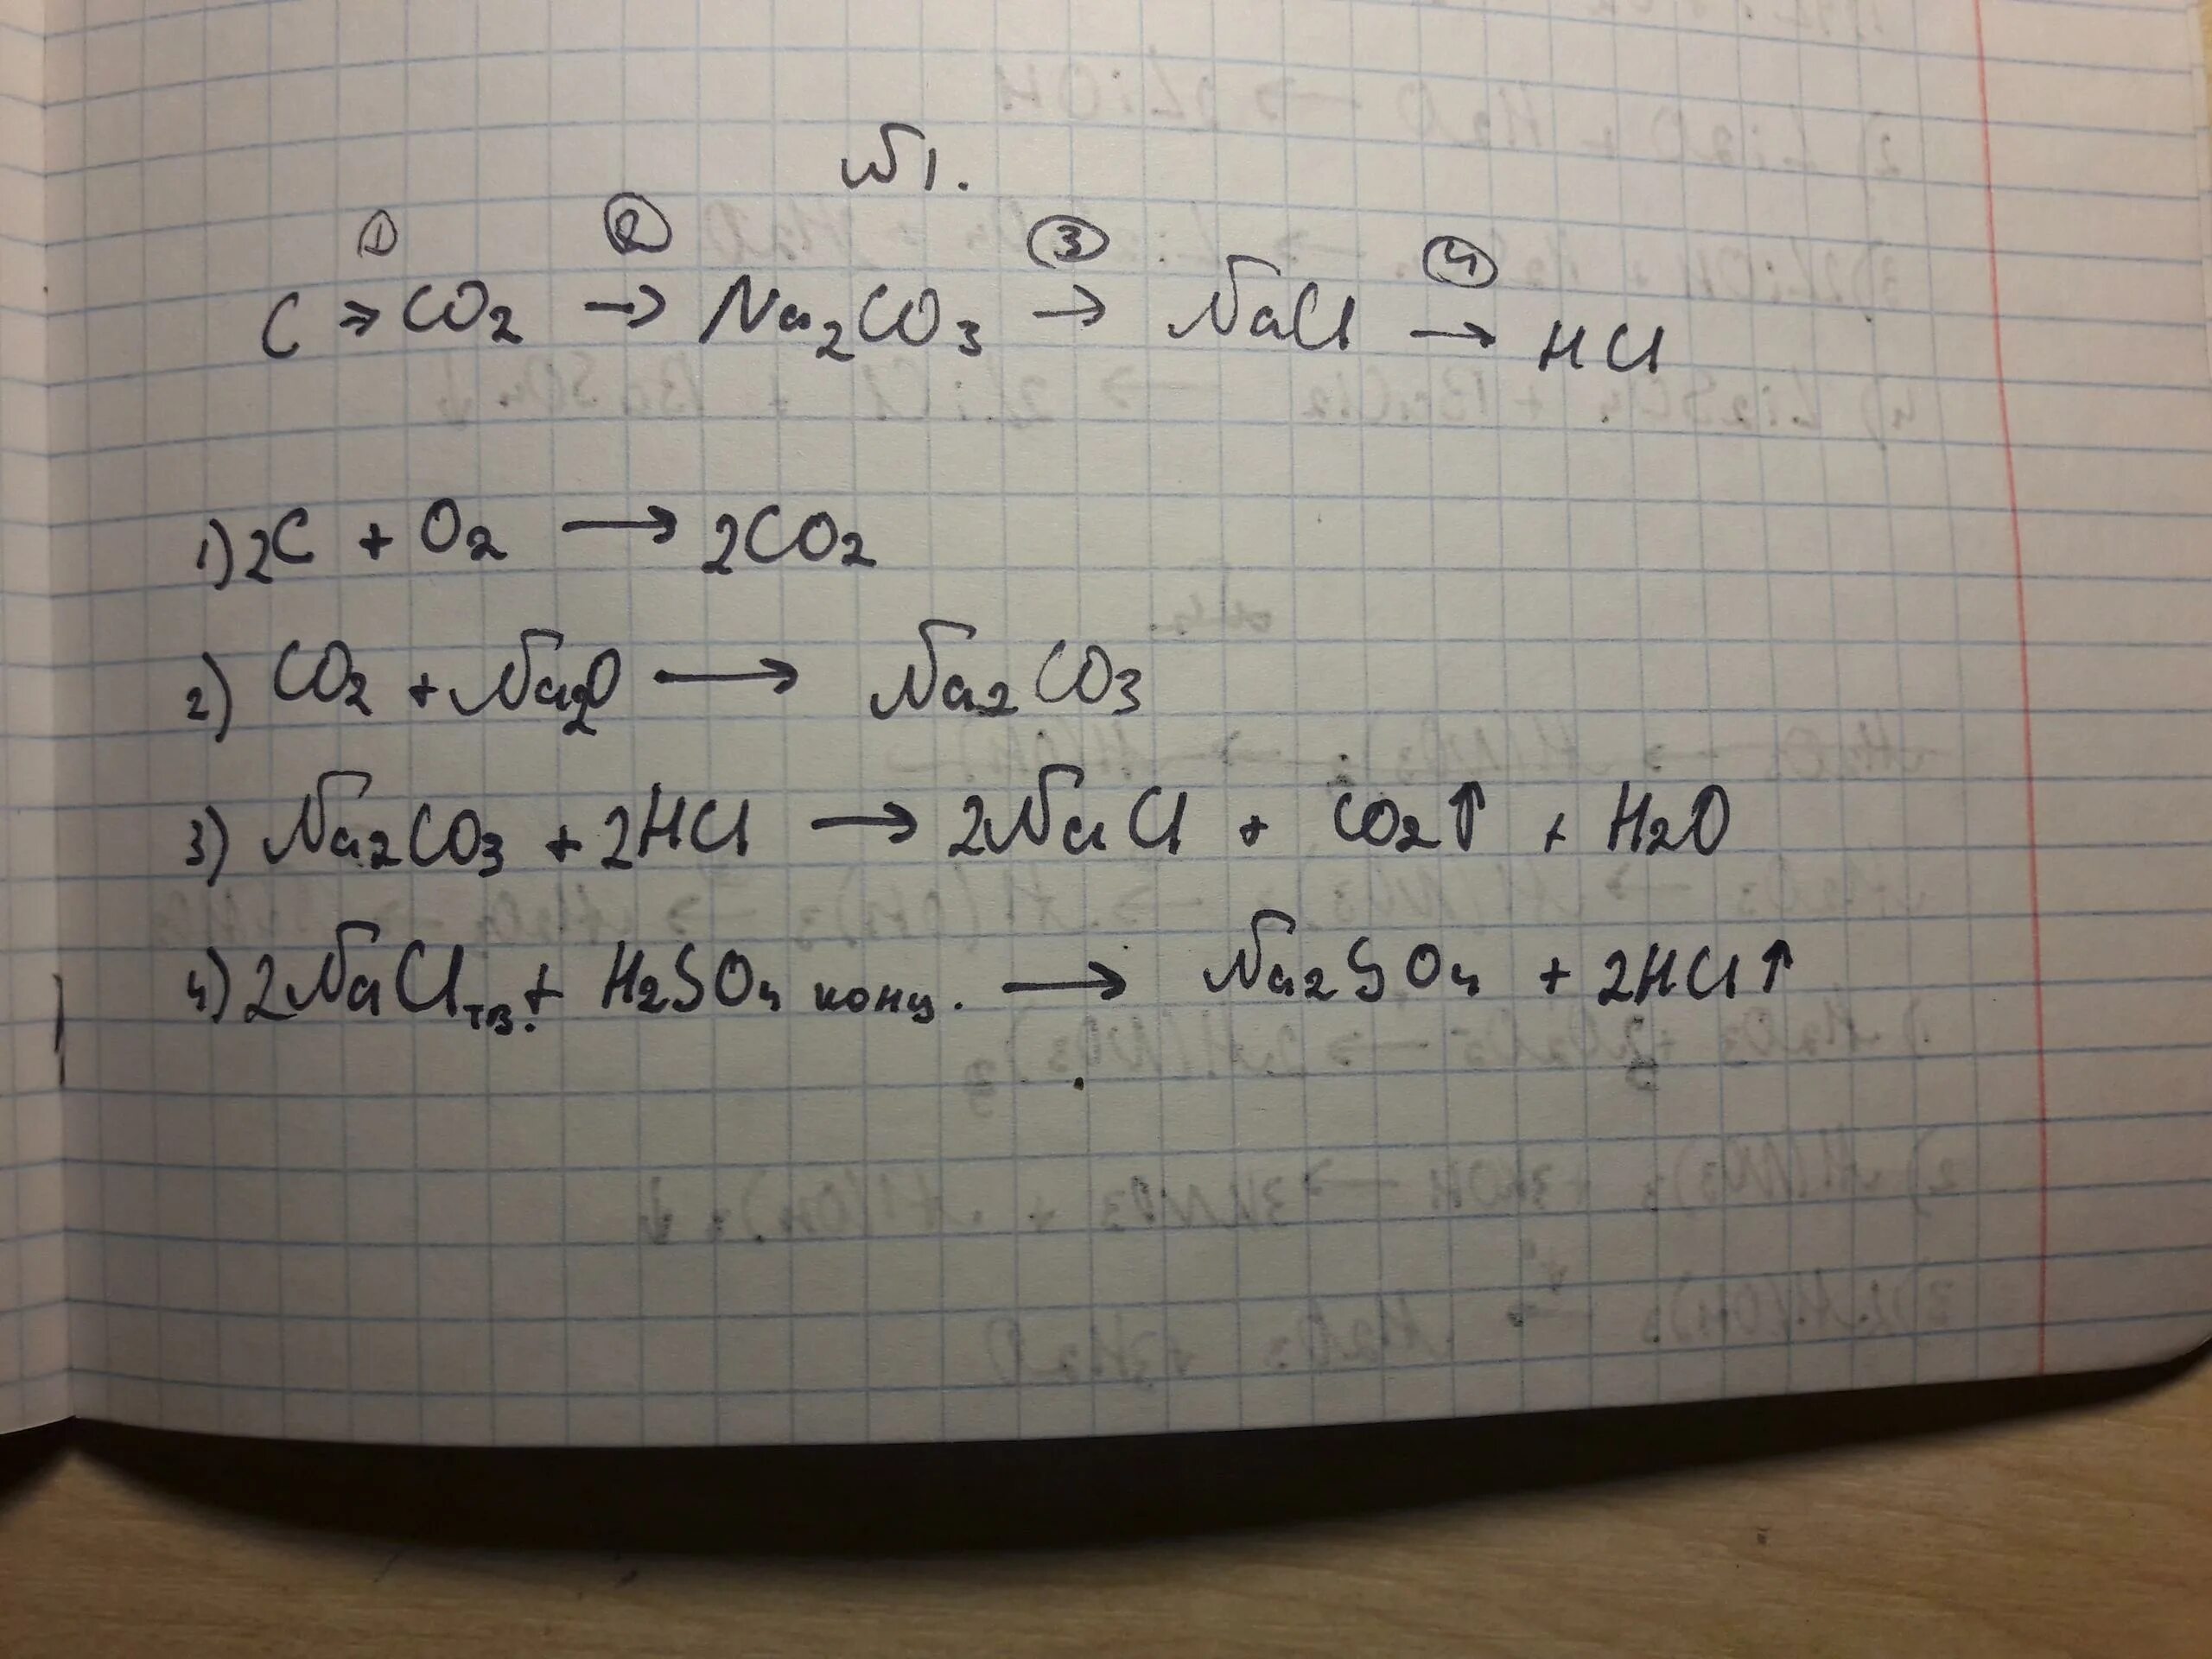 №1.
① ② ③ ④
C → CO2 → Na2CO3 → NaCl → HCl
1) 2C + O2 → 2CO2
2) CO2 + Na2O → Na2CO3
3) Na2CO3 + 2HCl → 2NaCl + CO2↑ + H2O
4) 2NaCl тв. + H2SO4 конц. → Na2SO4 + 2HCl↑